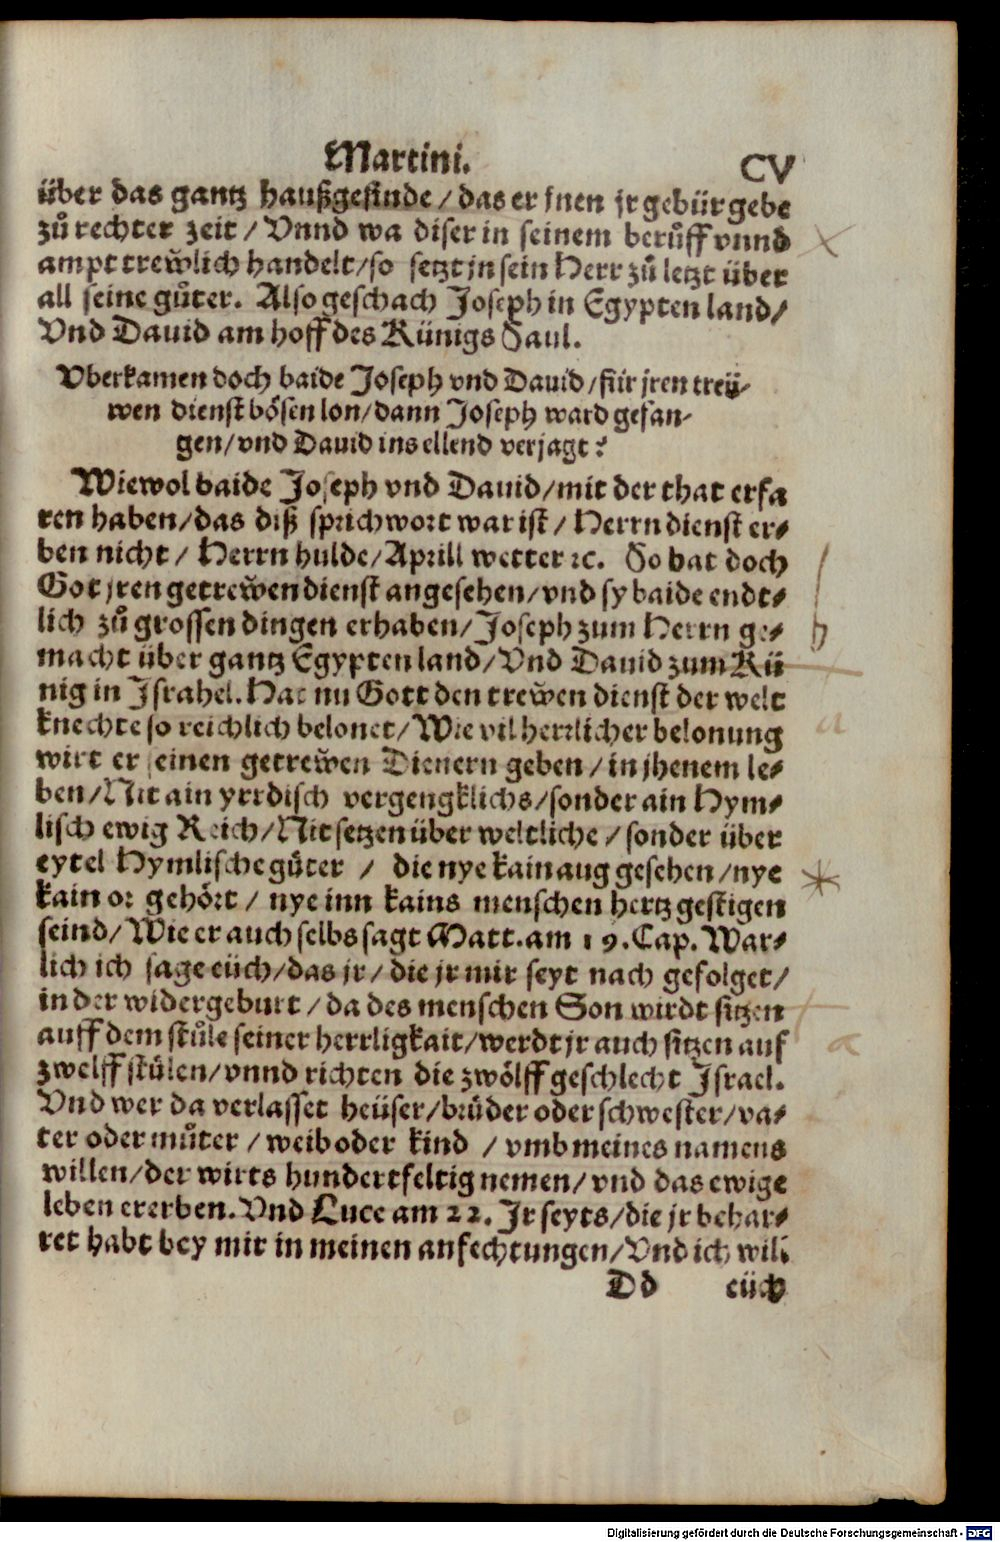 Martini. CV
über das gantz haußgesinde / das er jnen jr gebür gebe
zů rechter zeit / Vnnd wa diser in seinem berůff vnnd
ampt trewlich handelt / so setzt jn sein Herr zů letzt über
all seine gůter. Also geschach Joseph in Egypten land /
Vnd Dauid am hoff des Künigs Saul.
Vberkamen doch baide Joseph vnd Dauid / für jren treü-
wen dienst bösen lon / dann Joseph ward gefan-
gen / vnd Dauid ins ellend verjagt?
Wiewol baide Joseph vnd Dauid / mit der that erfa
ren haben / das diß sprichwort war ist / Herrn dienst er-
ben nicht / Herrn hulde / Aprill wetter ꝛc. So hat doch
Got jren getrewen dienst angesehen / vnd sy baide endt-
lich zů grossen dingen erhaben / Joseph zum Herrn ge-
macht über gantz Egypten land / Vnd Dauid zum Kü
nig in Israhel. Hat nu Gott den trewen dienst der welt
knechte so reichlich belonet / Wie vil herrlicher belonung
wirt er seinen getrewen Dienern geben / in jhenem le-
ben / Nit ain yrrdisch vergengklichs / sonder ain Hym-
lisch ewig Reich / Nit setzen über weltliche / sonder über
eytel Hymlische gůter / die nye kain aug gesehen / nye
kain or gehört / nye inn kains menschen hertz gestigen
seind / Wie er auch selbs sagt Matt. am 19. Cap. War-
lich ich sage eüch / das jr / die jr mir seyt nach gefolget /
in der widergeburt / da des menschen Son wirdt sitzen
auff dem stůle seiner herrligkait / werdt jr auch sitzen auf
zwelff stůlen / vnnd richten die zwölff geschlecht Israel.
Vnd wer da verlasset heüser / brüder oder schwester / va-
ter oder můter / weib oder kind / vmb meines namens
willen / der wirts hundertfeltig nemen / vnd das ewige
leben ererben. Vnd Luce am 22. Jr seyts / die jr behar-
ret habt bey mir in meinen anfechtungen / Vnd ich will
Dd eüch
Digitalisierung gefördert durch die Deutsche Forschungsgemeinschaft - DFG